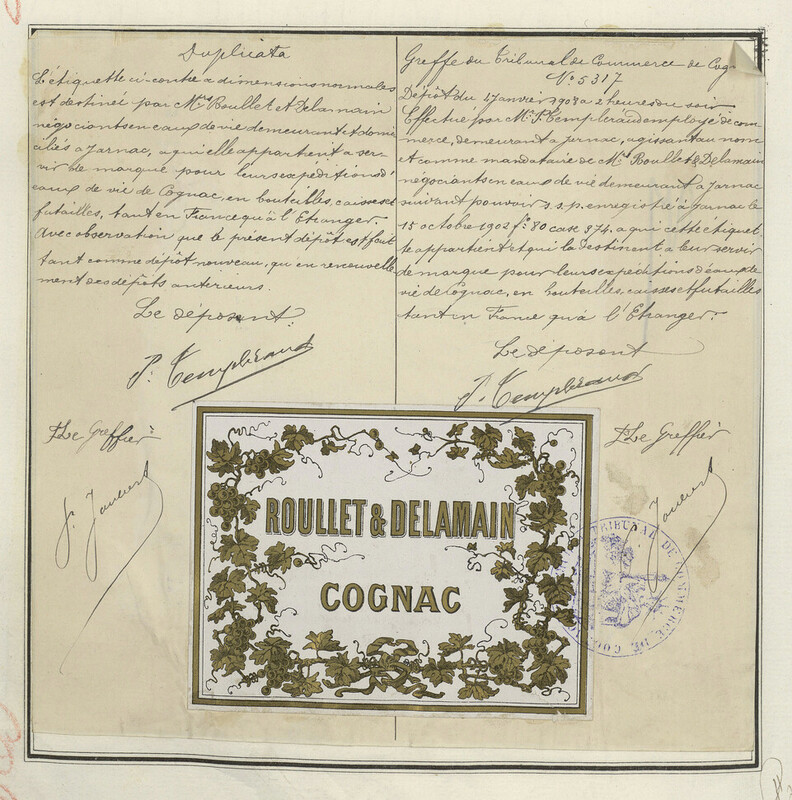 Duplicata
L'étiquette ci-contre a dimensions normales
est destiné par Mrs Roullet et Delamain
négociants en eaux de vie demeurant et domi
ciliés a Jarnac, a qui elle appartient a ser-
vir de marque pour leurs expéditions d'
eaux de vie de Cognac, en bouteilles, caisses et
futailles, tant en France qu'à l'Etranger.
Avec observation que le présent dépôt est fait
tant comme dépôt nouveau, qu'en renouvelle
ment des dépôts antérieurs.
Le déposent
P. Templeraud
Le Greffier
Greffe du Tribunal de Commerce de Cog
No 5317
Dépôt du 17 Janvier 1903 a 2 heures du soir
Effectué par Mr P. Templeraud employé de com
merce, demeurant a Jarnac, agissant au nom
et comme mandataire de Mrs Roullet & Delamain
négociants en eaux de vie demeurant a Jarnac
suivant pouvoir s.s.p. enregistré a Jarnac le
15 octobre 1902 fo 80 case 974, a qui cette étiquet
te appartient et qui la destinent a leur servir
de marque pour leurs expéditions d'eaux de
vie de Cognac, en bouteilles, caisses et futailles
tant en France qu'à l'Etranger.
Le déposent
P. Templeraud
Le Greffier
ROULLET & DELAMAIN
COGNAC
TRIBUNAL DE COMMERCE DE COG